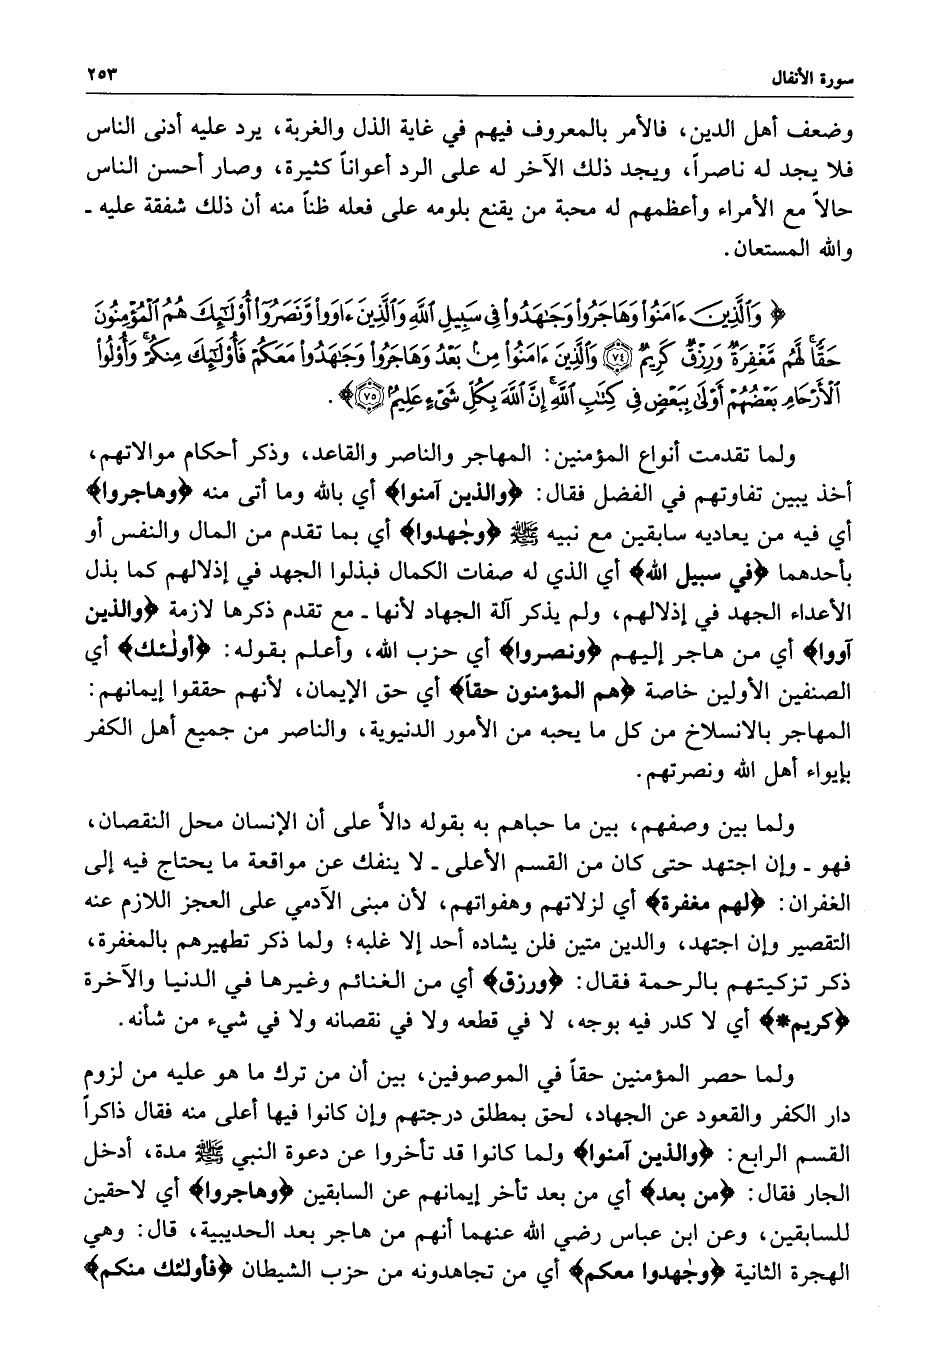 سورة الأنفال
٢٥٣
وضعف أهل الدين، فالأمر بالمعروف فيهم في غاية الذل والغربة، يرد عليه أدنى الناس
فلا يجد له ناصراً، ويجد ذلك الآخر له على الرد أعواناً كثيرة، وصار أحسن الناس
حالاً مع الأمراء وأعظمهم له محبة من يقنع بلومه على فعله ظناً منه أن ذلك شفقة عليه ـ
والله المستعان.
﴿ وَٱلَّذِينَ ءَامَنُوا۟ وَهَاجَرُوا۟ وَجَـٰهَدُوا۟ فِى سَبِيلِ ٱللَّهِ وَٱلَّذِينَ ءَاوَوا۟ وَّنَصَرُوٓا۟ أُو۟لَـٰٓئِكَ هُمُ ٱلْمُؤْمِنُونَ
حَقًّا ۚ لَّهُم مَّغْفِرَةٌ وَرِزْقٌ كَرِيمٌ ﴿٧٤﴾ وَٱلَّذِينَ ءَامَنُوا۟ مِنۢ بَعْدُ وَهَاجَرُوا۟ وَجَـٰهَدُوا۟ مَعَكُمْ فَأُو۟لَـٰٓئِكَ مِنكُمْ ۚ وَأُو۟لُوا۟
ٱلْأَرْحَامِ بَعْضُهُمْ أَوْلَىٰ بِبَعْضٍ فِى كِتَـٰبِ ٱللَّهِ ۗ إِنَّ ٱللَّهَ بِكُلِّ شَىْءٍ عَلِيمٌۢ ﴿٧٥﴾ ﴾.
ولما تقدمت أنواع المؤمنين: المهاجر والناصر والقاعد، وذكر أحكام موالاتهم،
أخذ يبين تفاوتهم في الفضل فقال: ﴿والذين آمنوا﴾ أي بالله وما أتى منه ﴿وهاجروا﴾
أي فيه من يعاديه سابقين مع نبيه ﷺ ﴿وجٰهدوا﴾ أي بما تقدم من المال والنفس أو
بأحدهما ﴿في سبيل الله﴾ أي الذي له صفات الكمال فبذلوا الجهد في إذلالهم كما بذل
الأعداء الجهد في إذلالهم، ولم يذكر آلة الجهاد لأنها ـ مع تقدم ذكرها لازمة ﴿والذين
آووا﴾ أي من هاجر إليهم ﴿ونصروا﴾ أي حزب الله، وأعلم بقوله: ﴿أولٰئك﴾ أي
الصنفين الأولين خاصة ﴿هم المؤمنون حقاً﴾ أي حق الإيمان، لأنهم حققوا إيمانهم:
المهاجر بالانسلاخ من كل ما يحبه من الأمور الدنيوية، والناصر من جميع أهل الكفر
بإيواء أهل الله ونصرتهم.
ولما بين وصفهم، بين ما حباهم به بقوله دالاً على أن الإنسان محل النقصان،
فهو ـ وإن اجتهد حتى كان من القسم الأعلى ـ لا ينفك عن مواقعة ما يحتاج فيه إلى
الغفران: ﴿لهم مغفرة﴾ أي لزلاتهم وهفواتهم، لأن مبنى الآدمي على العجز اللازم عنه
التقصير وإن اجتهد، والدين متين فلن يشاده أحد إلا غلبه؛ ولما ذكر تطهيرهم بالمغفرة،
ذكر تزكيتهم بالرحمة فقال: ﴿ورزق﴾ أي من الغنائم وغيرها في الدنيا والآخرة
﴿كريم*﴾ أي لا كدر فيه بوجه، لا في قطعه ولا في نقصانه ولا في شيء من شأنه.
ولما حصر المؤمنين حقاً في الموصوفين، بين أن من ترك ما هو عليه من لزوم
دار الكفر والقعود عن الجهاد، لحق بمطلق درجتهم وإن كانوا فيها أعلى منه فقال ذاكراً
القسم الرابع: ﴿والذين آمنوا﴾ ولما كانوا قد تأخروا عن دعوة النبي ﷺ مدة، أدخل
الجار فقال: ﴿من بعد﴾ أي من بعد تأخر إيمانهم عن السابقين ﴿وهاجروا﴾ أي لاحقين
للسابقين، وعن ابن عباس رضي الله عنهما أنهم من هاجر بعد الحديبية، قال: وهي
الهجرة الثانية ﴿وجٰهدوا معكم﴾ أي من تجاهدونه من حزب الشيطان ﴿فأولٰئك منكم﴾